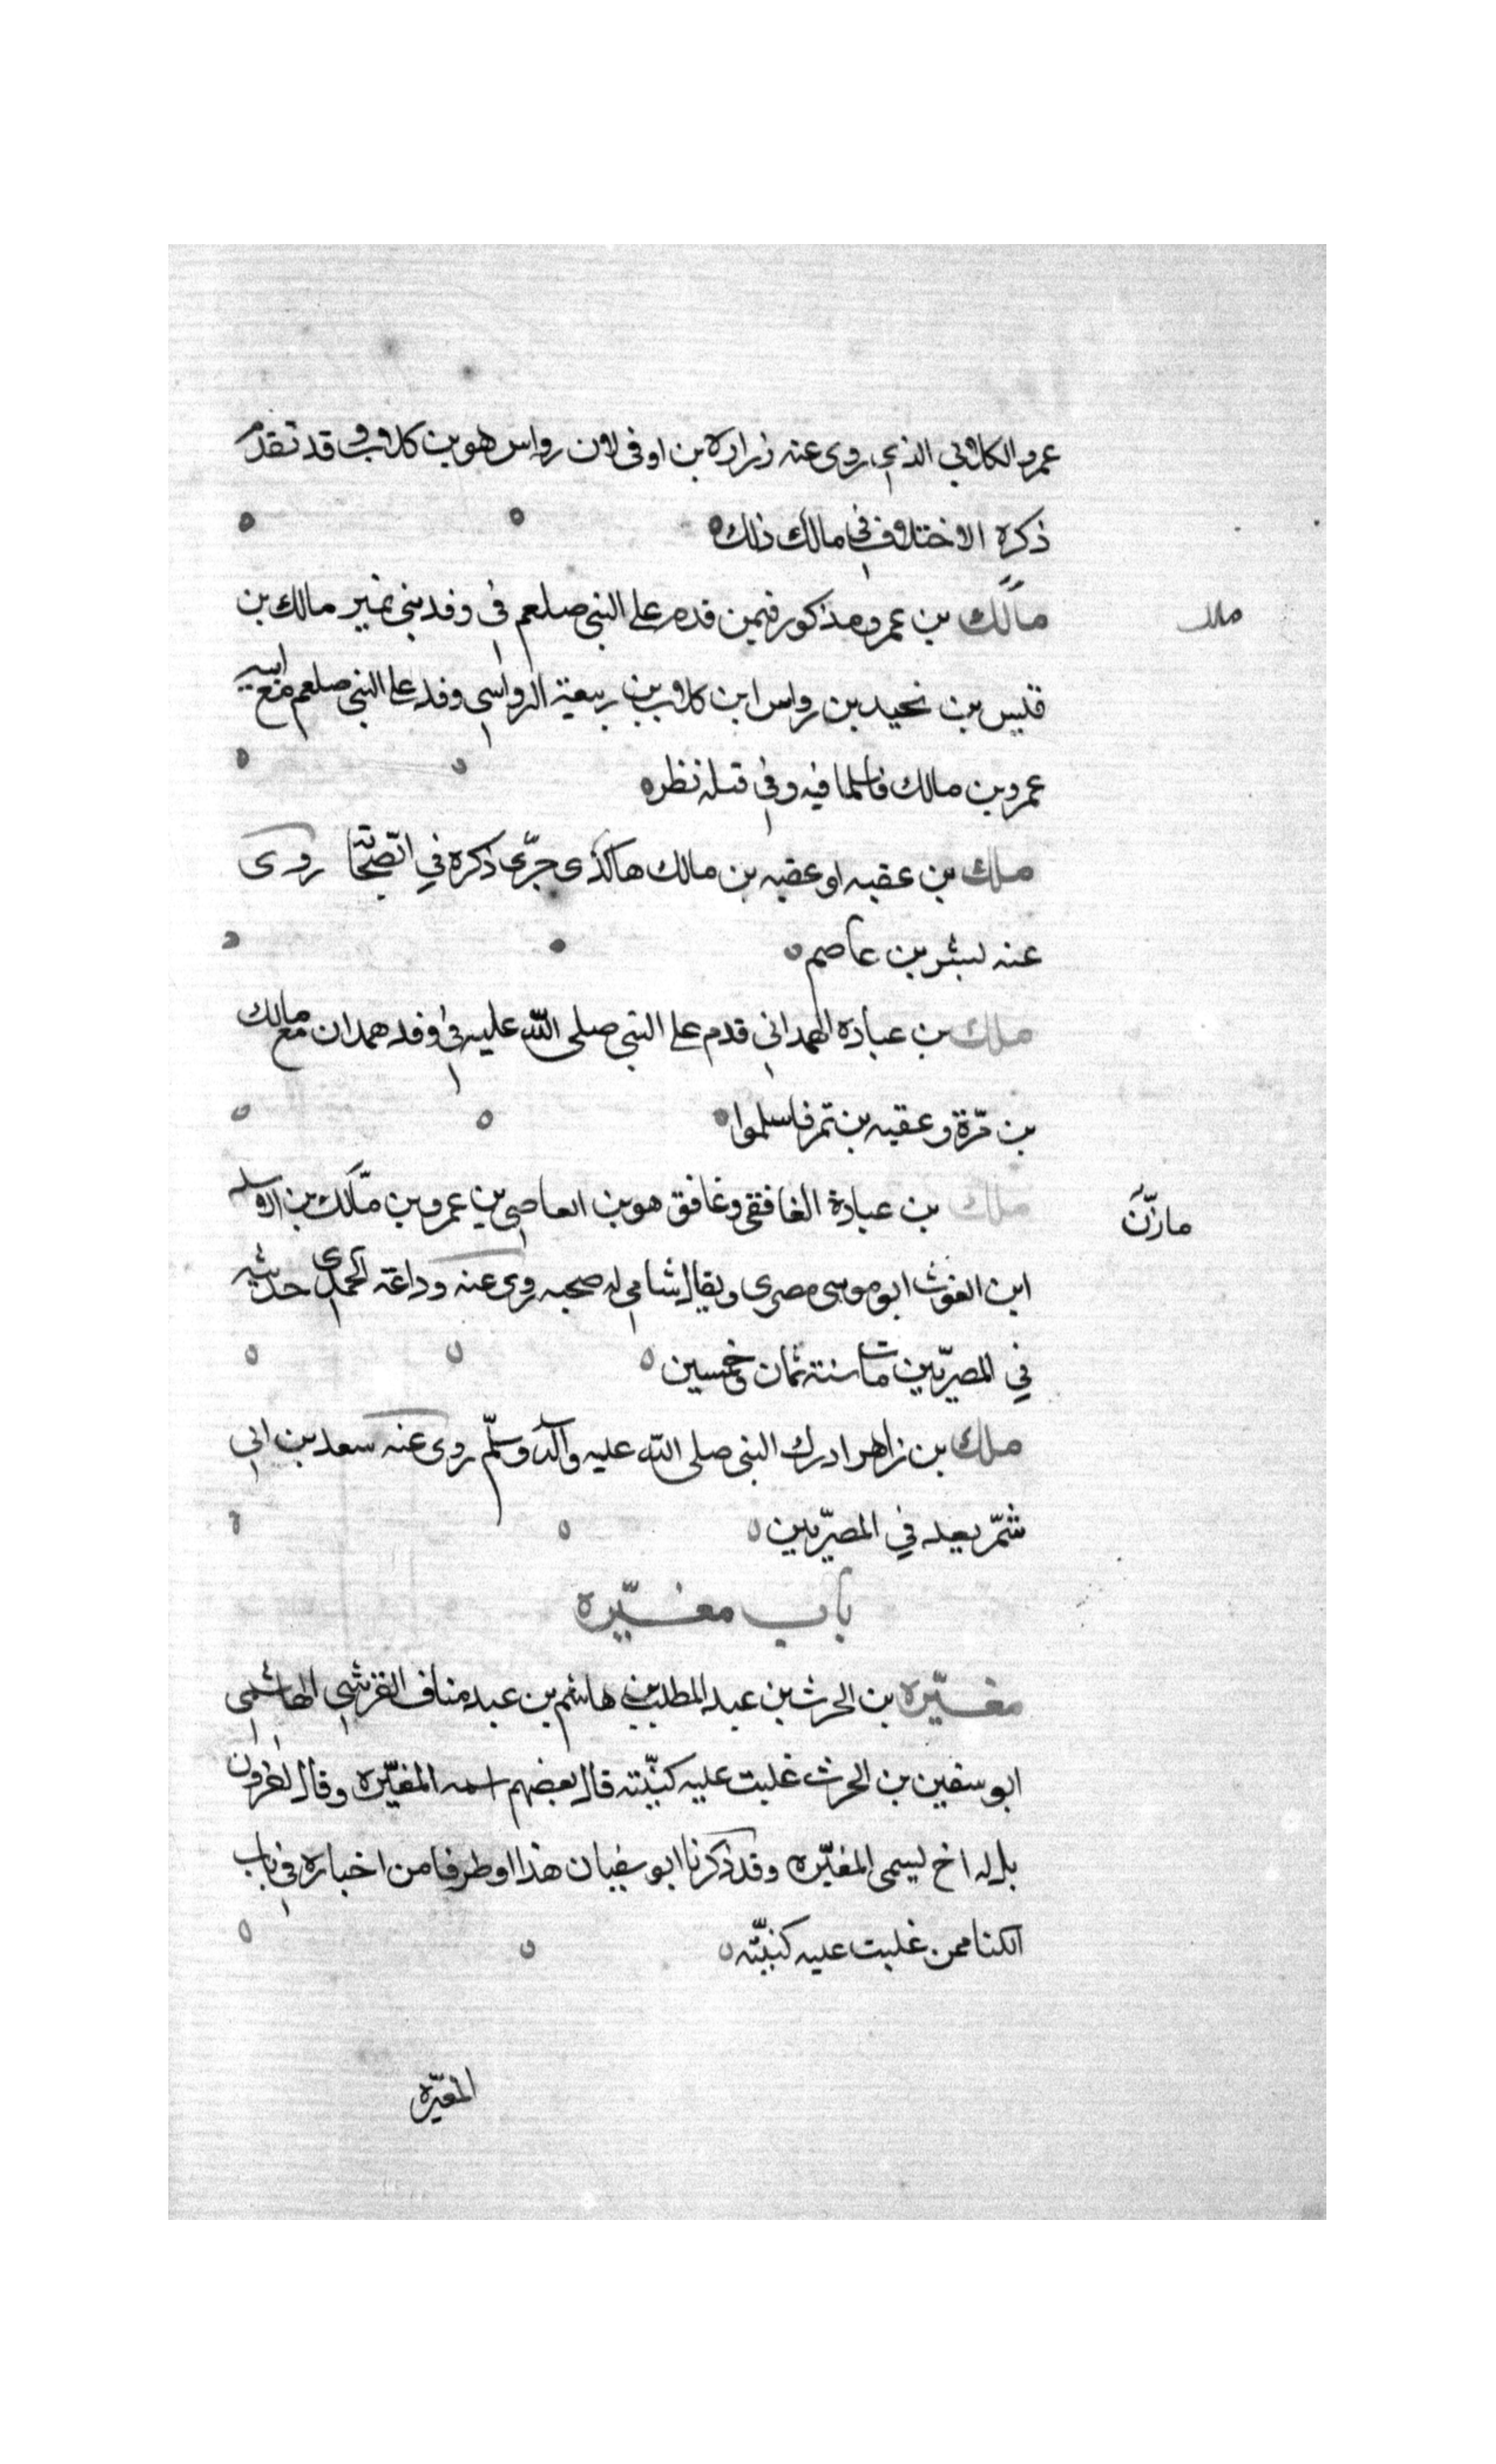 عمرو الكلابي الذي روى عنه زرارة بن اوفى لان رواس هو بن كلاب وقد تقدم
ذكره الاختلاف في مالك ذلك
مالك بن عمرو مذكور فيمن قدم على النبي صلعم في وفد بني نمير مالك بن
قيس بن نحيد بن رواس ابن كلاب بن ربيعة الرواسي وفد على النبي صلعم مع ابيه
عمرو بن مالك فاسلما فيه وفي قتله نظر
ملك بن عقبه او عقبه بن مالك هاكذى جرى ذكره في روى
عنه بشر بن عاصم
ملك بن عبادة الهمداني قدم على النبي صلى الله عليه في وفد همدان مع مالك
بن مرة وعقبه بن نمر فاسلموا
ملك بن عبادة الغافقي وغافق هو بن العاصي بن عمرو بن مالك بن
مازن
ابن الغوث ابو موسى مصري ويقال شامي له صحبه روى عنه وداعة الحمدي حديثه
في المصريين مات سنة ثمان وخمسين
ملك بن زاهر ادرك النبي صلى الله عليه وآله وسلّم روى عنه سعد بن ابي
شمّر يعد في المصريين
باب مغيّره
مغيّره بن الحرث بن عبد المطلب بن هاشم بن عبد مناف القرشي الهاشمي
ابو سفين بن الحرث غلبت عليه كنيّته قال بعضهم اسمه المغيّره وقال اخرون
بل له اخ يسمى المغيّره وقد ذكرنا ابو سفيان هذا وطرفا من اخباره في باب
الكنا ممن غلبت عليه كنيّته
المغيّره